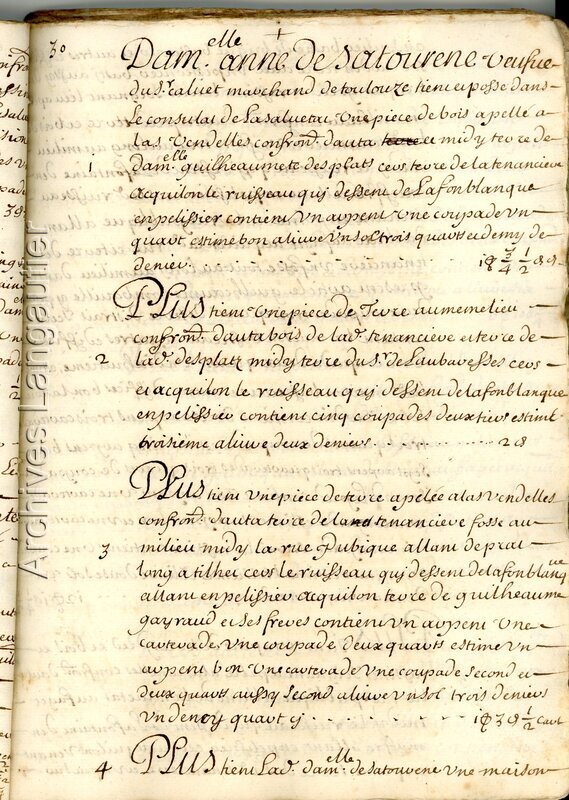 30
Dam.elle anne de Satourene veufue
du S.r calvet marchand de toulouze tient et posse dans
Le consulat de Lasalvetat vne piece de bois apellé a
las vendelles confron.t d'auta terre midy terre de
1 dam.elle guilheaumete desplats cers terre de la tenanciere
acquilon le ruisseau quj dessent de Lafonblanque
en pelissier contient vn arpent vne coupade vn
quart estimé bon aliure vn sol trois quarts et demy de
denier . . . . . 1 s 3/4 1/2 d
PLus tient vne piece de Terre au meme lieu
confron.t d'auta bois de lad.e tenanciere et terre de
2 lad.e desplatz midy terre du S.r de Laubaresses cers
et acquilon le ruisseau quj dessent de lafonblanque
en pelissier contient cinq coupades deux tiers estimé
troisieme aliure deux deniers . . . . . 2 d
PLus tient vne piece de terre apelée a las vendelles
confron.t d'auta terre de la tenanciere fosse au
3 milieu midy la rue Publique allant de prat
long a tilhet cers le ruisseau quj dessent de lafonblanque
allant en pelissier acquilon terre de guilheaume
gayraud et ses freres contient vn arpent vne
carterade vne coupade deux quarts estimé vn
arpent bon vne carterade vne coupade second et
deux quarts aussy second aliure vn sol trois deniers
vn demy quart cj . . . . . 1 s 3 d 1/2 cart
4 PLus tient Lad.e dam.elle de satourene vne maison
Archives Langautier